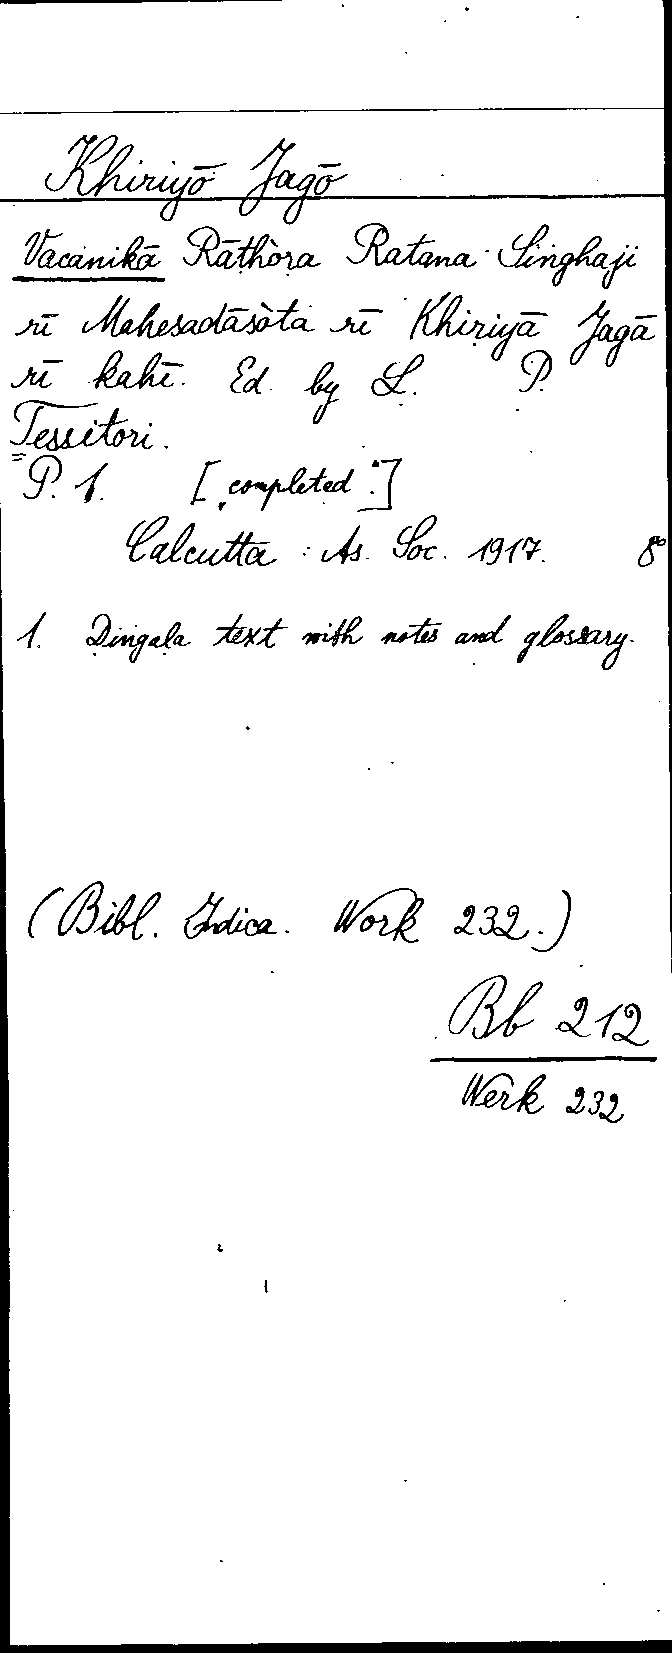 Khiriyō Jagō
Vacanikā Rāṭhòra Ratana Singhaji
rī Mahesadāsòta rī Khiriyā Jagā
rī kahī. Ed. by L. P.
Tessitori.
P. 1. ["completed".]
Calcutta: As. Soc. 1917. 8°
1. Ḍiṅgaḷa text with notes and glossary.
(Bibl. Indica. Work 232.)
Bb 212
Werk 232